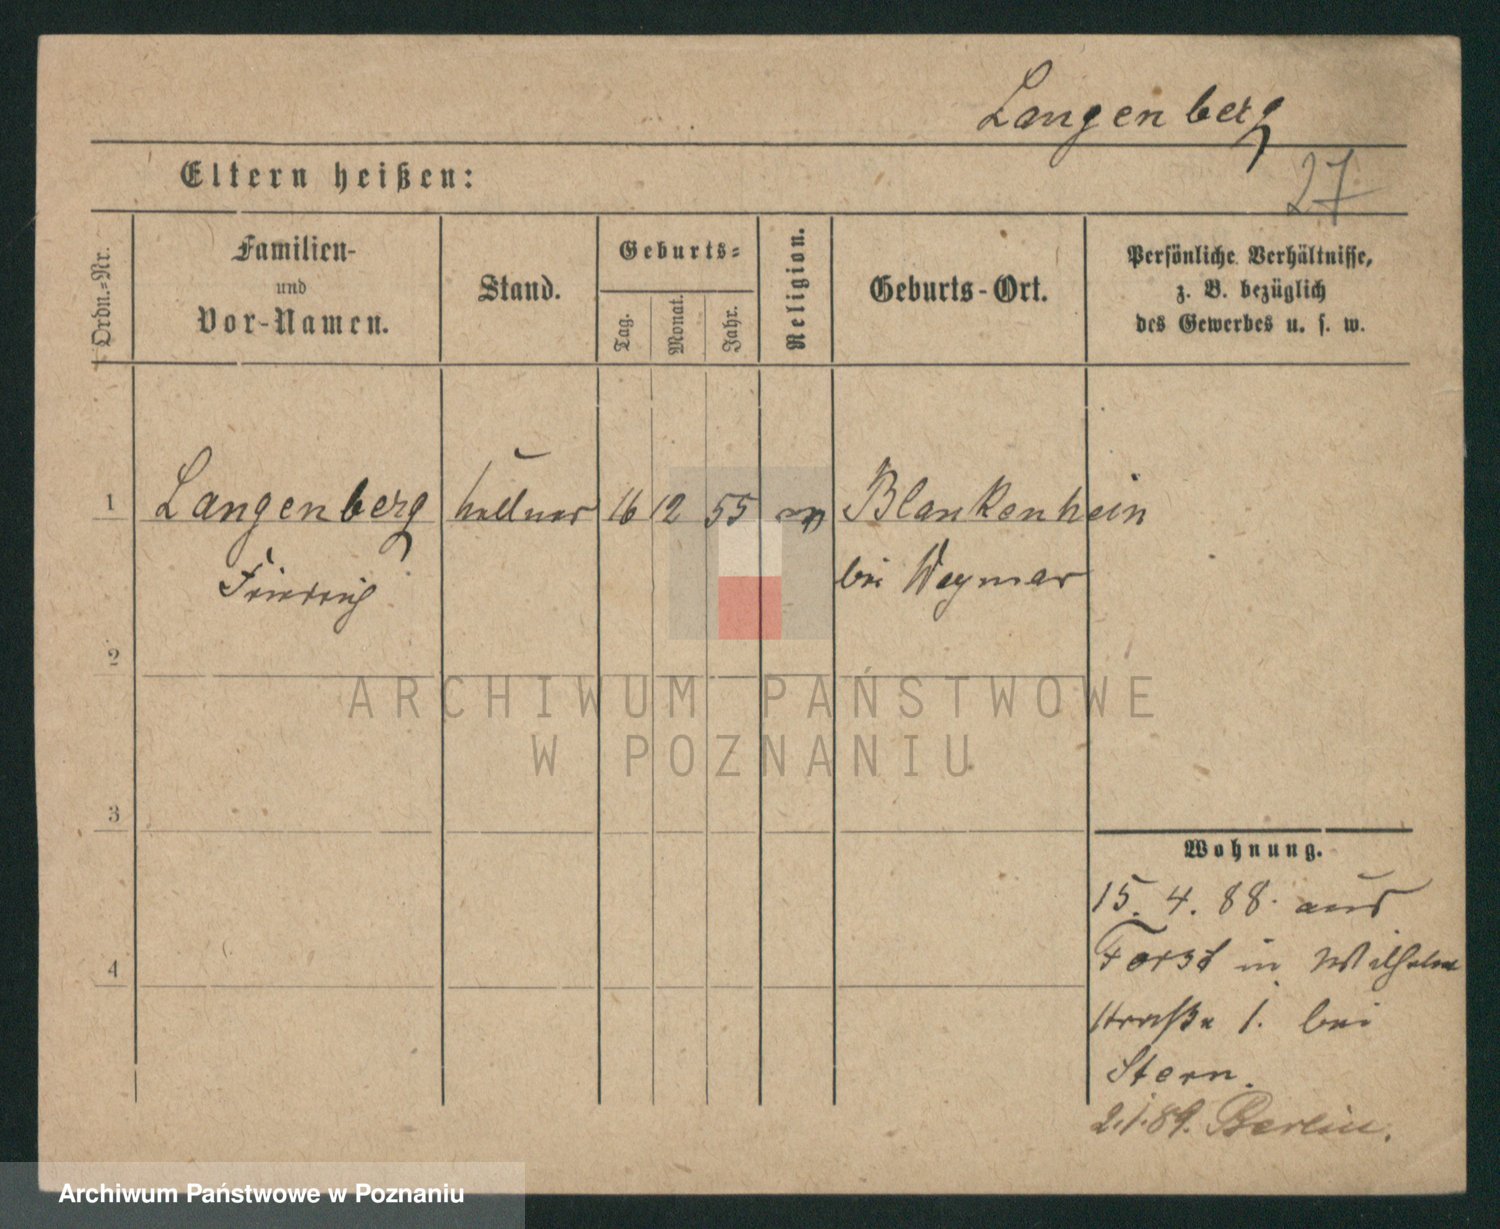 Langenberg
Eltern heißen:
27
Ordn.-Nr.
Familien-
und
Vor-Namen.
Stand.
Geburts-
Tag.
Monat.
Jahr.
Religion.
Geburts-Ort.
Persönliche Verhältnisse,
z. B. bezüglich
des Gewerbes u. s. w.
1 Langenberg Kellner 16 12 55 Blankenhein
Friedrich bei Weymar
2
ARCHIWUM PAŃSTWOWE
W POZNANIU
3
Wohnung.
15. 4. 88. aus
4
Forst in Wilhelm
straße 1. bei
Stern.
2.1.89. Berlin.
Archiwum Państwowe w Poznaniu